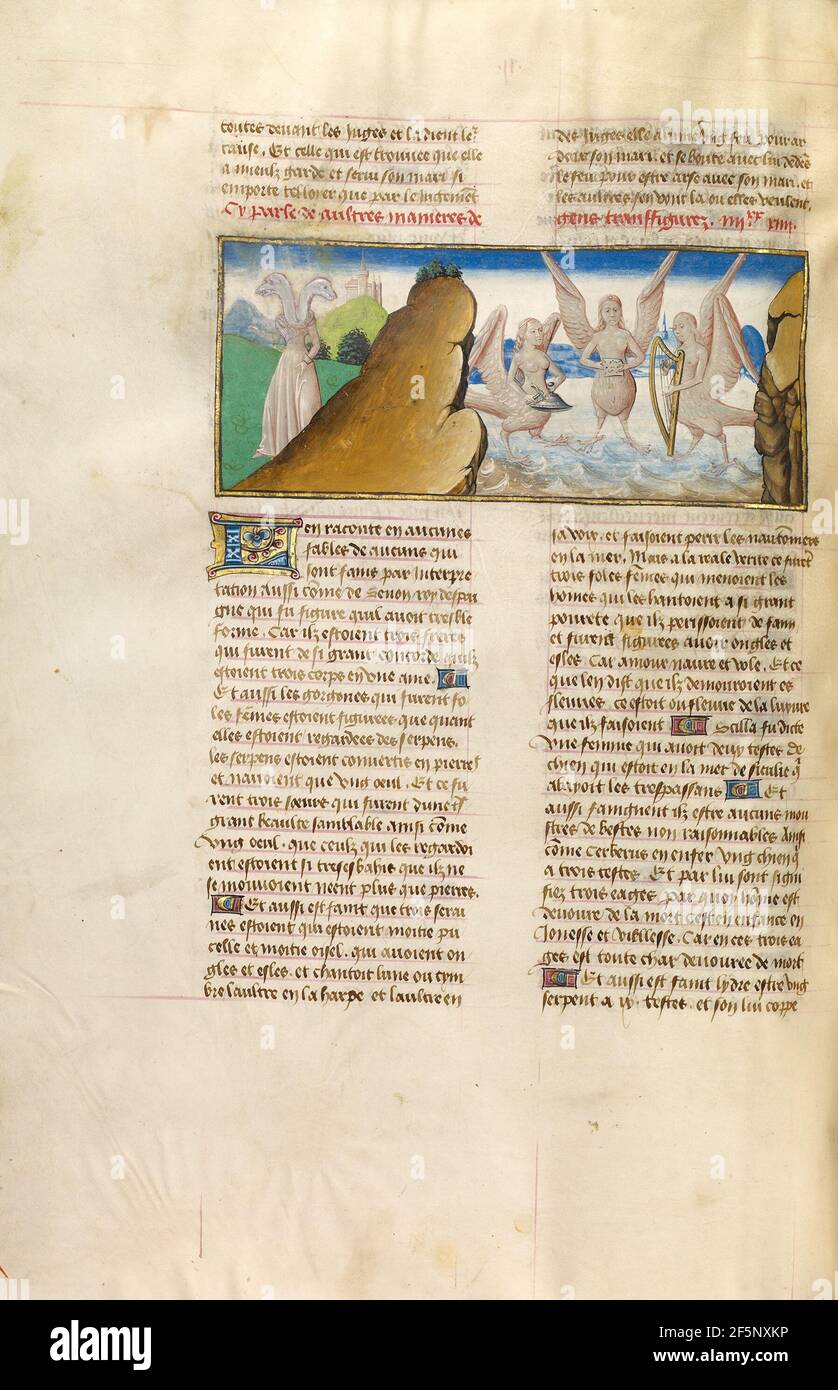 toutes deuant les Juges et la dient le
cause. Et celle qui est trouuee que elle
a mieulx garde et serui son mari si
emporte tel loyer que par le Jugement
Cy parle de aultres manieres de
des Juges elle
de son mari. et se boute auec lui dedens
le feu pour estre arse auec son mari. et
les aultres sen vont la ou elles veulent.
gens transfigurez. iiii xx xiiii.
en raconte en aucunes
fables de aucuns qui
sont fains par Interpre
tation aussi come de Senon roy despai
gne qui fu figure quil auoit treible
forme. Car ilz estoient trois
qui furent de si grant concorde quilz
estoient trois corps en vne ame.
Et aussi les gorgones qui furent fo
les femes estoient figurees que quant
elles estoient regardees des serpens.
les serpens estoient conuertis en pierre
et nauoient que vng oeul. Et ce fu
rent trois soeurs qui furent dune
grant beaulte samblable ainsi come
vng oeul. que ceulx qui les regardoi
ent estoient si tresesbahis que ilz ne
se mouuoient neent plus que pierres.
Et aussi est faint que trois serai
nes estoient qui estoient moitie pu
celle et moitie oisel. qui auoient on
gles et esles. et chantoit lune ou tym
bre laultre en la harpe et laultre en
la voix. et faisoient perir les nautonniers
en la mer. Mais a la reale verite ce furent
trois foles femes qui menoient les
homes qui les hantoient a si grant
pourete que ilz perissoient de faim
et furent figurees auoir ongles et
esles. Car amour naure et vole. Et ce
que len dist que ilz demouroient es
fleuues. ce estoit ou fleuue de la luxure
que ilz faisoient Scilla fu dicte
vne femme qui auoit deux testes de
chien qui estoit en la mer de sicilie q
abayoit les trespassans Et
aussi faingnent ilz estre aucuns mon
stres de bestes non raisonnables Ainsi
come Cerberus en enfer vng chien q
a trois testes. Et par lui sont signi
fiez trois eages par quoy home est
deuoure de la mort cest en enfance en
Jonesse et viellesse. Car en ces trois ea
ges est toute char deuouree de mort
Et aussi est faint lydre estre vng
serpent a testes. et son lui coppe
alamy
Image ID: 2F5NXKP
www.alamy.com